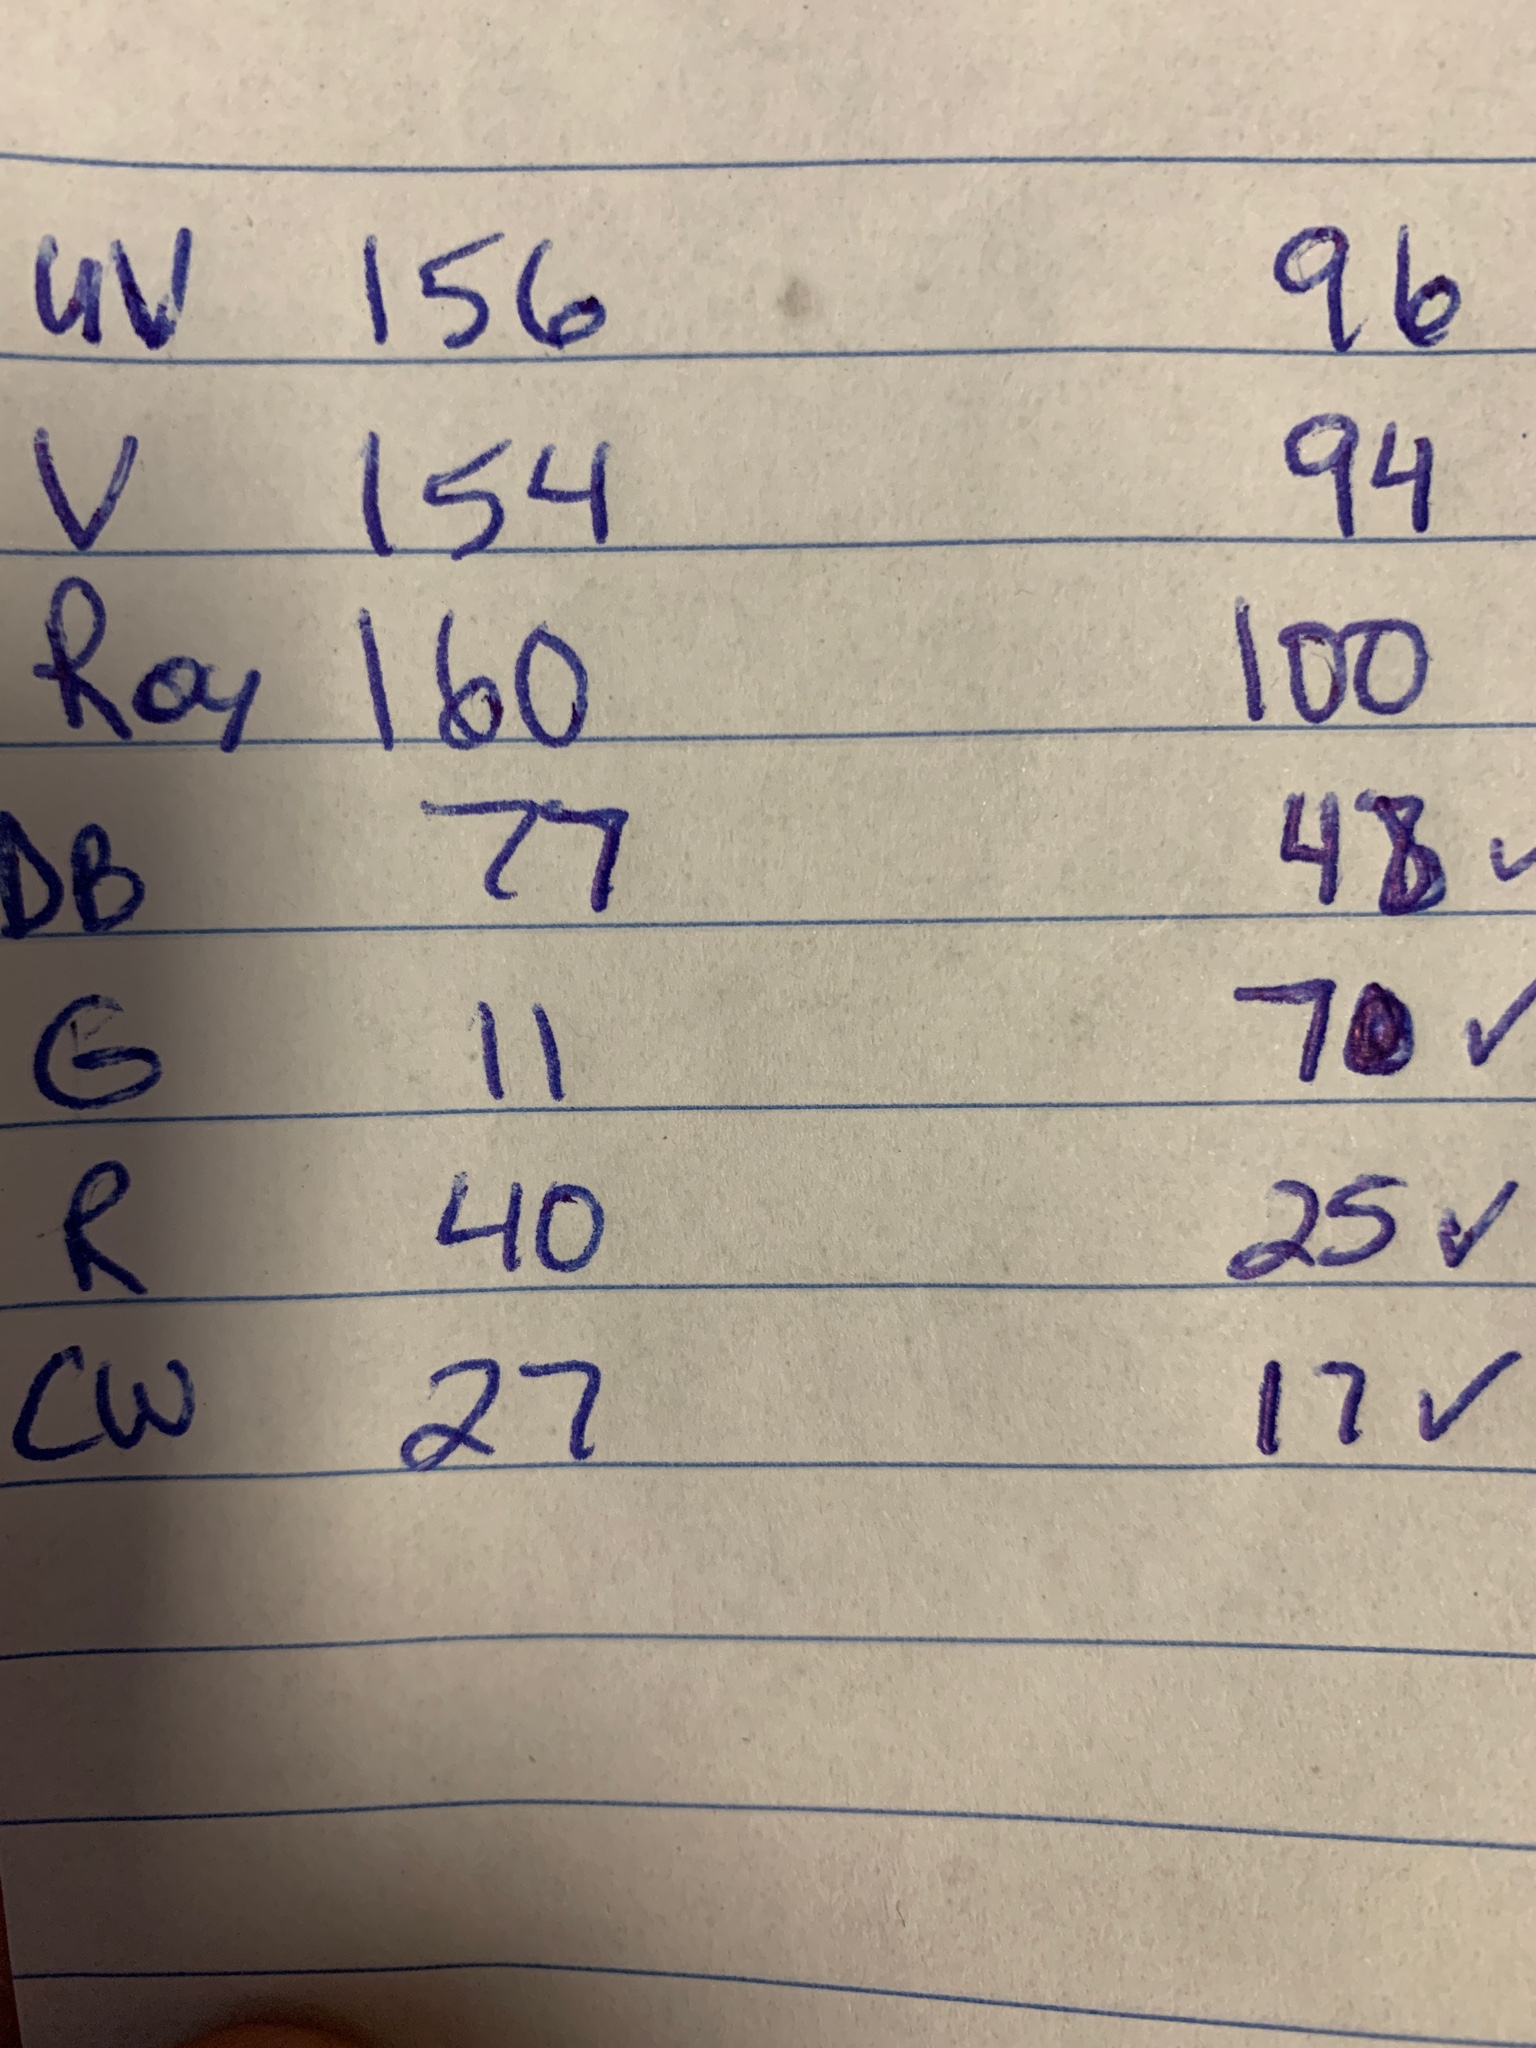 UV 156 96
V 154 94
Roy 160 100
DB 77 48 ✓
G 11 70 ✓
R 40 25 ✓
CW 27 17 ✓